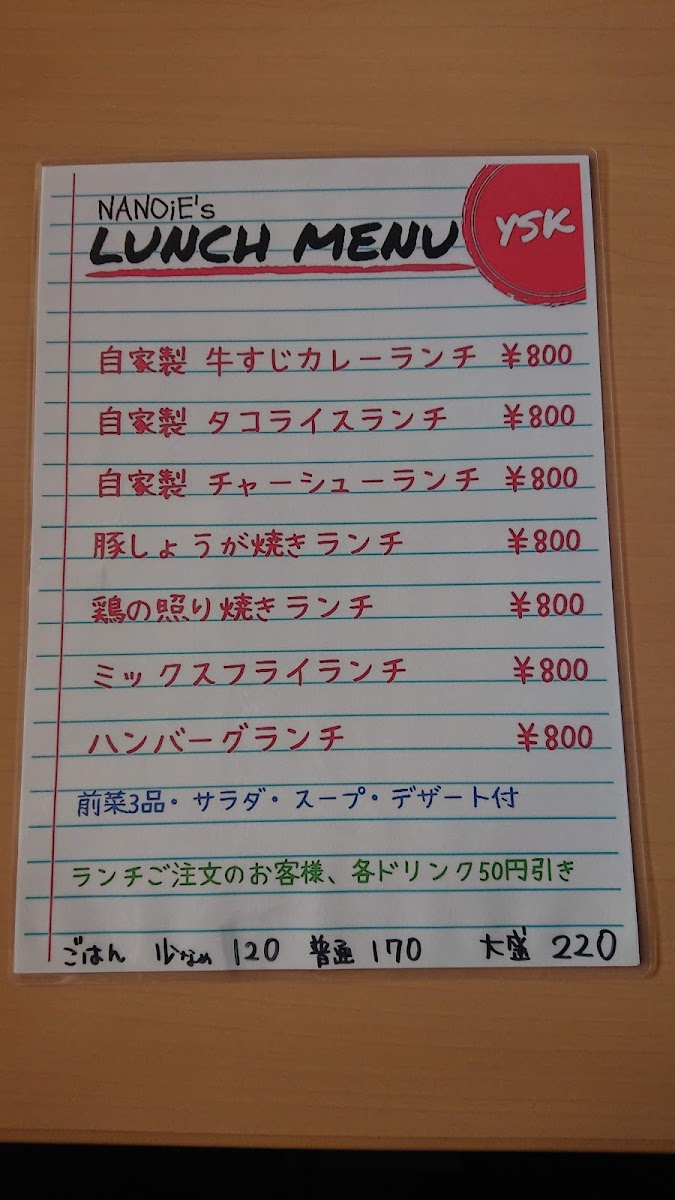 NANOiE's
LUNCH MENU
YSK
自家製 牛すじカレーランチ ¥800
自家製 タコライスランチ ¥800
自家製 チャーシューランチ ¥800
豚しょうが焼きランチ ¥800
鶏の照り焼きランチ ¥800
ミックスフライランチ ¥800
ハンバーグランチ ¥800
前菜3品・サラダ・スープ・デザート付
ランチご注文のお客様、各ドリンク50円引き
ごはん 少なめ 120 普通 170 大盛 220